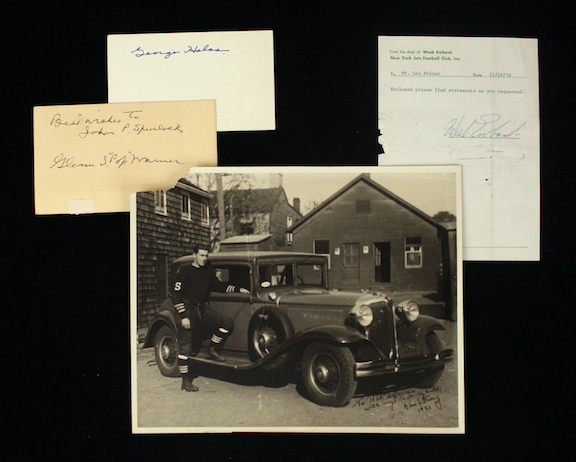 George Halas
Best wishes to
John P Spurlock
Glenn S "Pop" Warner
From the desk of Weeb Ewbank
New York Jets Football Club, Inc.
To Mr. Lou Date 11/29/74
Enclosed please find statements as you requested.
Weeb Ewbank
S
To
Ken Strong
1931